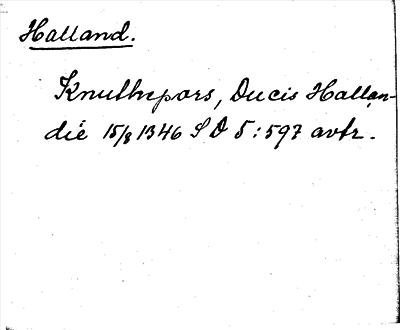 Halland.
Knuthspors, Ducis Hallan-
die 15/8 1346 SD 5:597 avtr.